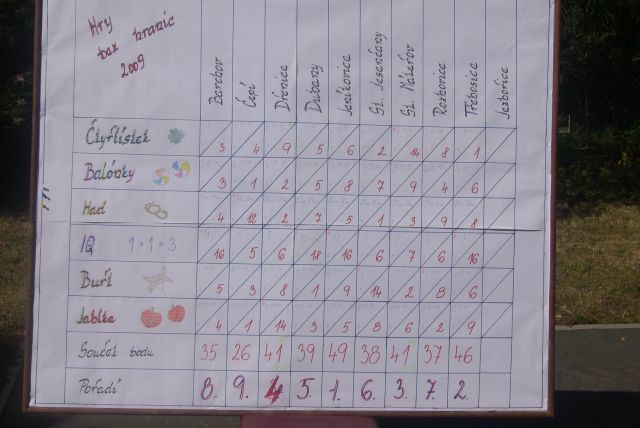 Hry
bez hranic
2009
Barchov Čepí Dřenice Dubany Jeníkovice St. Jesenčany St. Mateřov Rozhovice Třebosice Jezbořice
Čtyřlístek 3 4 9 5 6 2 14 8 1
Balónky 3 1 2 5 8 7 9 4 6
Had 4 12 2 7 5 1 3 9 8
IQ 1+1=3 16 5 6 18 16 6 7 6 16
Buřt 5 3 8 1 9 14 2 8 6
Jablka 4 1 14 3 5 8 6 2 9
Součet bodu 35 26 41 39 49 38 41 37 46
Pořadí 8. 9. 4. 5. 1. 6. 3. 7. 2.